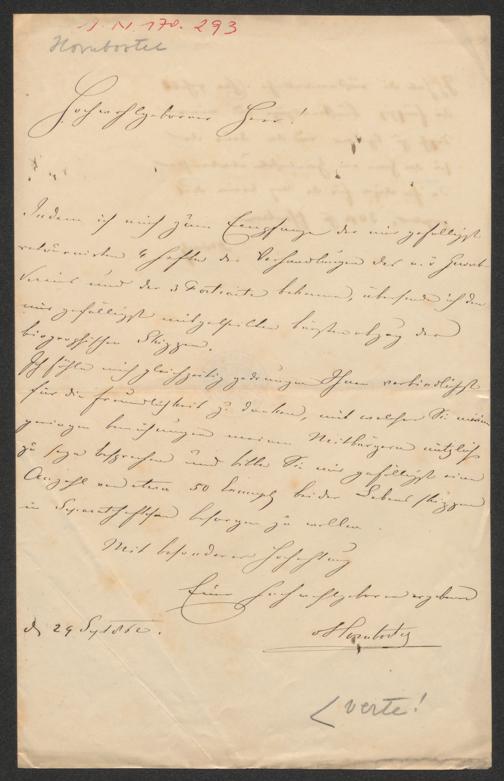 I. N. 170.293
Hornbostel
Hochwohlgeborner Herr!
Indem ich mich zum Empfange der mir gefälligst
retournirten 4 Hefte der Verhandlungen des n.ö Gewerb
Vereins und der 3 Portraite bekenne, übersende ich den
mir gefälligst mitgetheilten bürstenabzug der
biografischen Skizzen.
Ich fühle mich gleichzeitig gedrungen Ihnen verbindlichst
für die Freundlichkeit zu danken, mit welcher Sie meine
geringen bemühungen meinen Mitbürgern nützlich
zu seyn besprechen und bitte Sie mir gefälligst eine
Anzahl von etwa 50 Exempl beider Lebens skizzen
in besorgen zu wollen.
Mit besonderer Hochachtung
Euer Hochwohlgeboren ergebene
29 Sept 186
Hornbostel
verte!